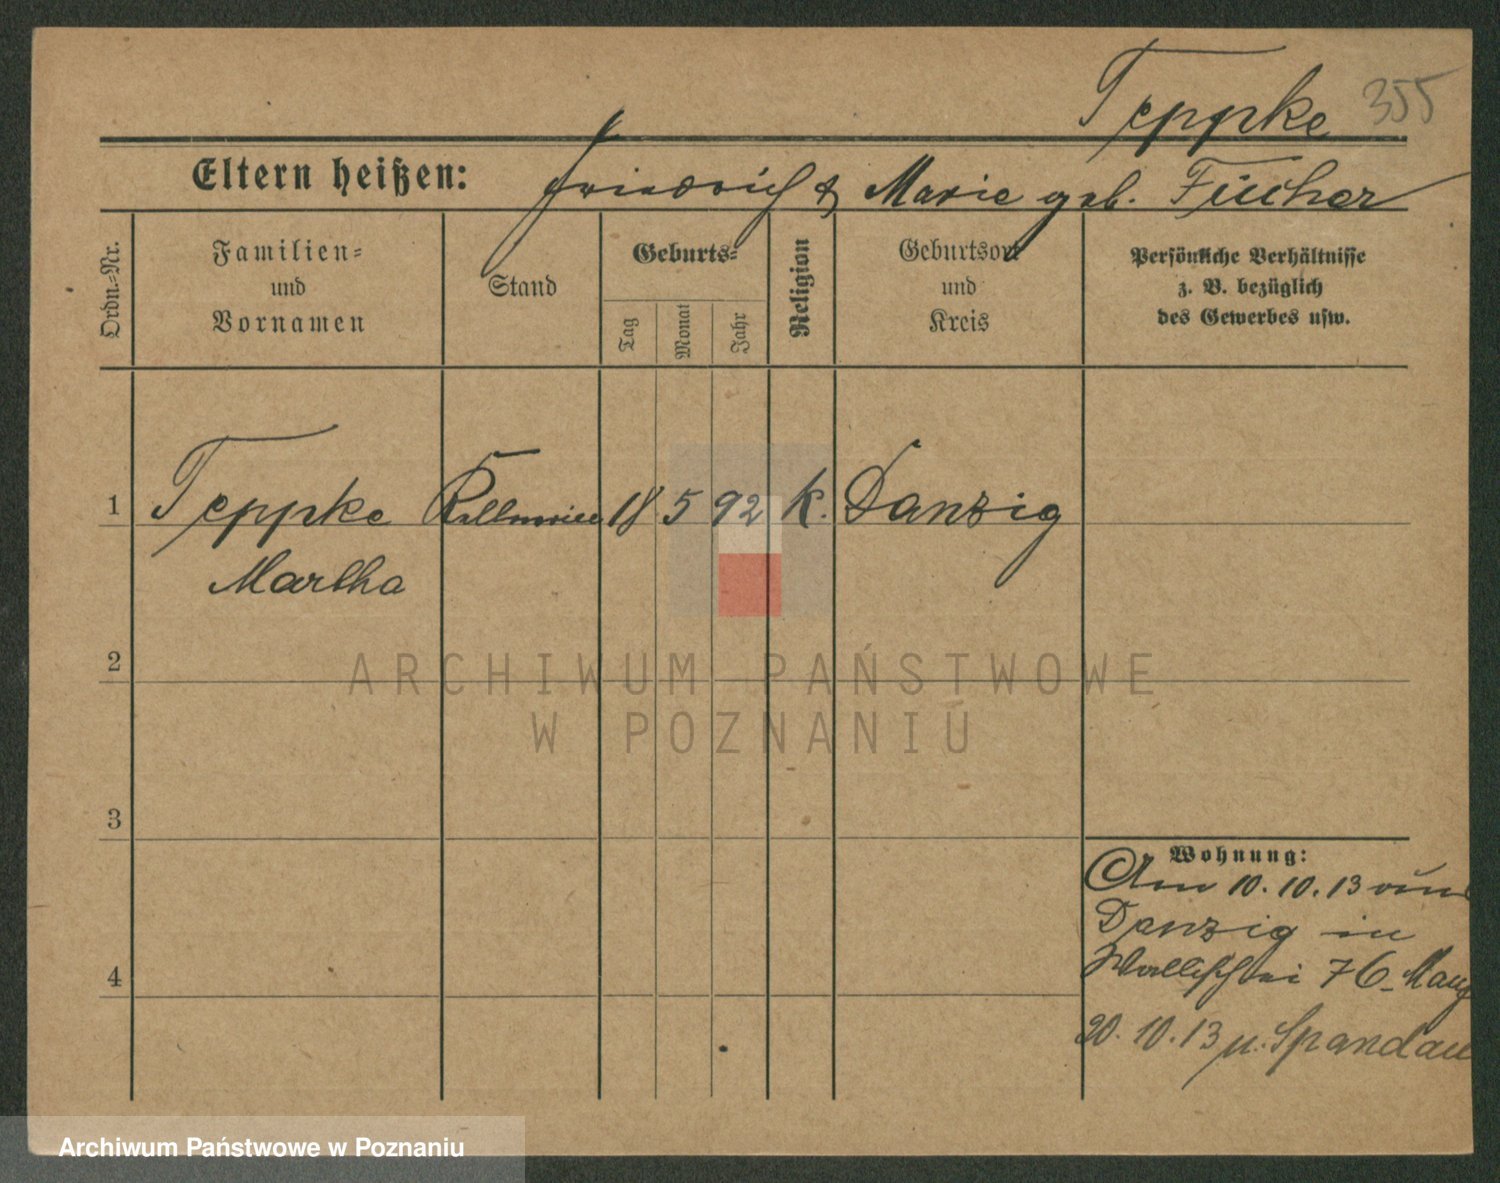 Teppke 355
Eltern heißen: Friedrich & Marie geb. Fischer
Ordn.-Nr.
Familien- und Vornamen
Stand
Geburts-
Tag
Monat
Jahr
Religion
Geburtsort und Kreis
Persönliche Verhältnisse
z. B. bezüglich
des Gewerbes usw.
1 Teppke Kellnerin 18 5 92 k. Danzig
Martha
2
ARCHIWUM PAŃSTWOWE
W POZNANIU
3
4
Wohnung:
Am 10.10.13 von
Danzig in
Wallischei 76
20.10.13 n. Spandau
Archiwum Państwowe w Poznaniu